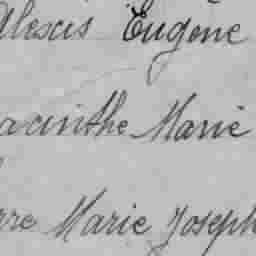 Alexis Eugène
acinthe Marie
rre Marie Joseph